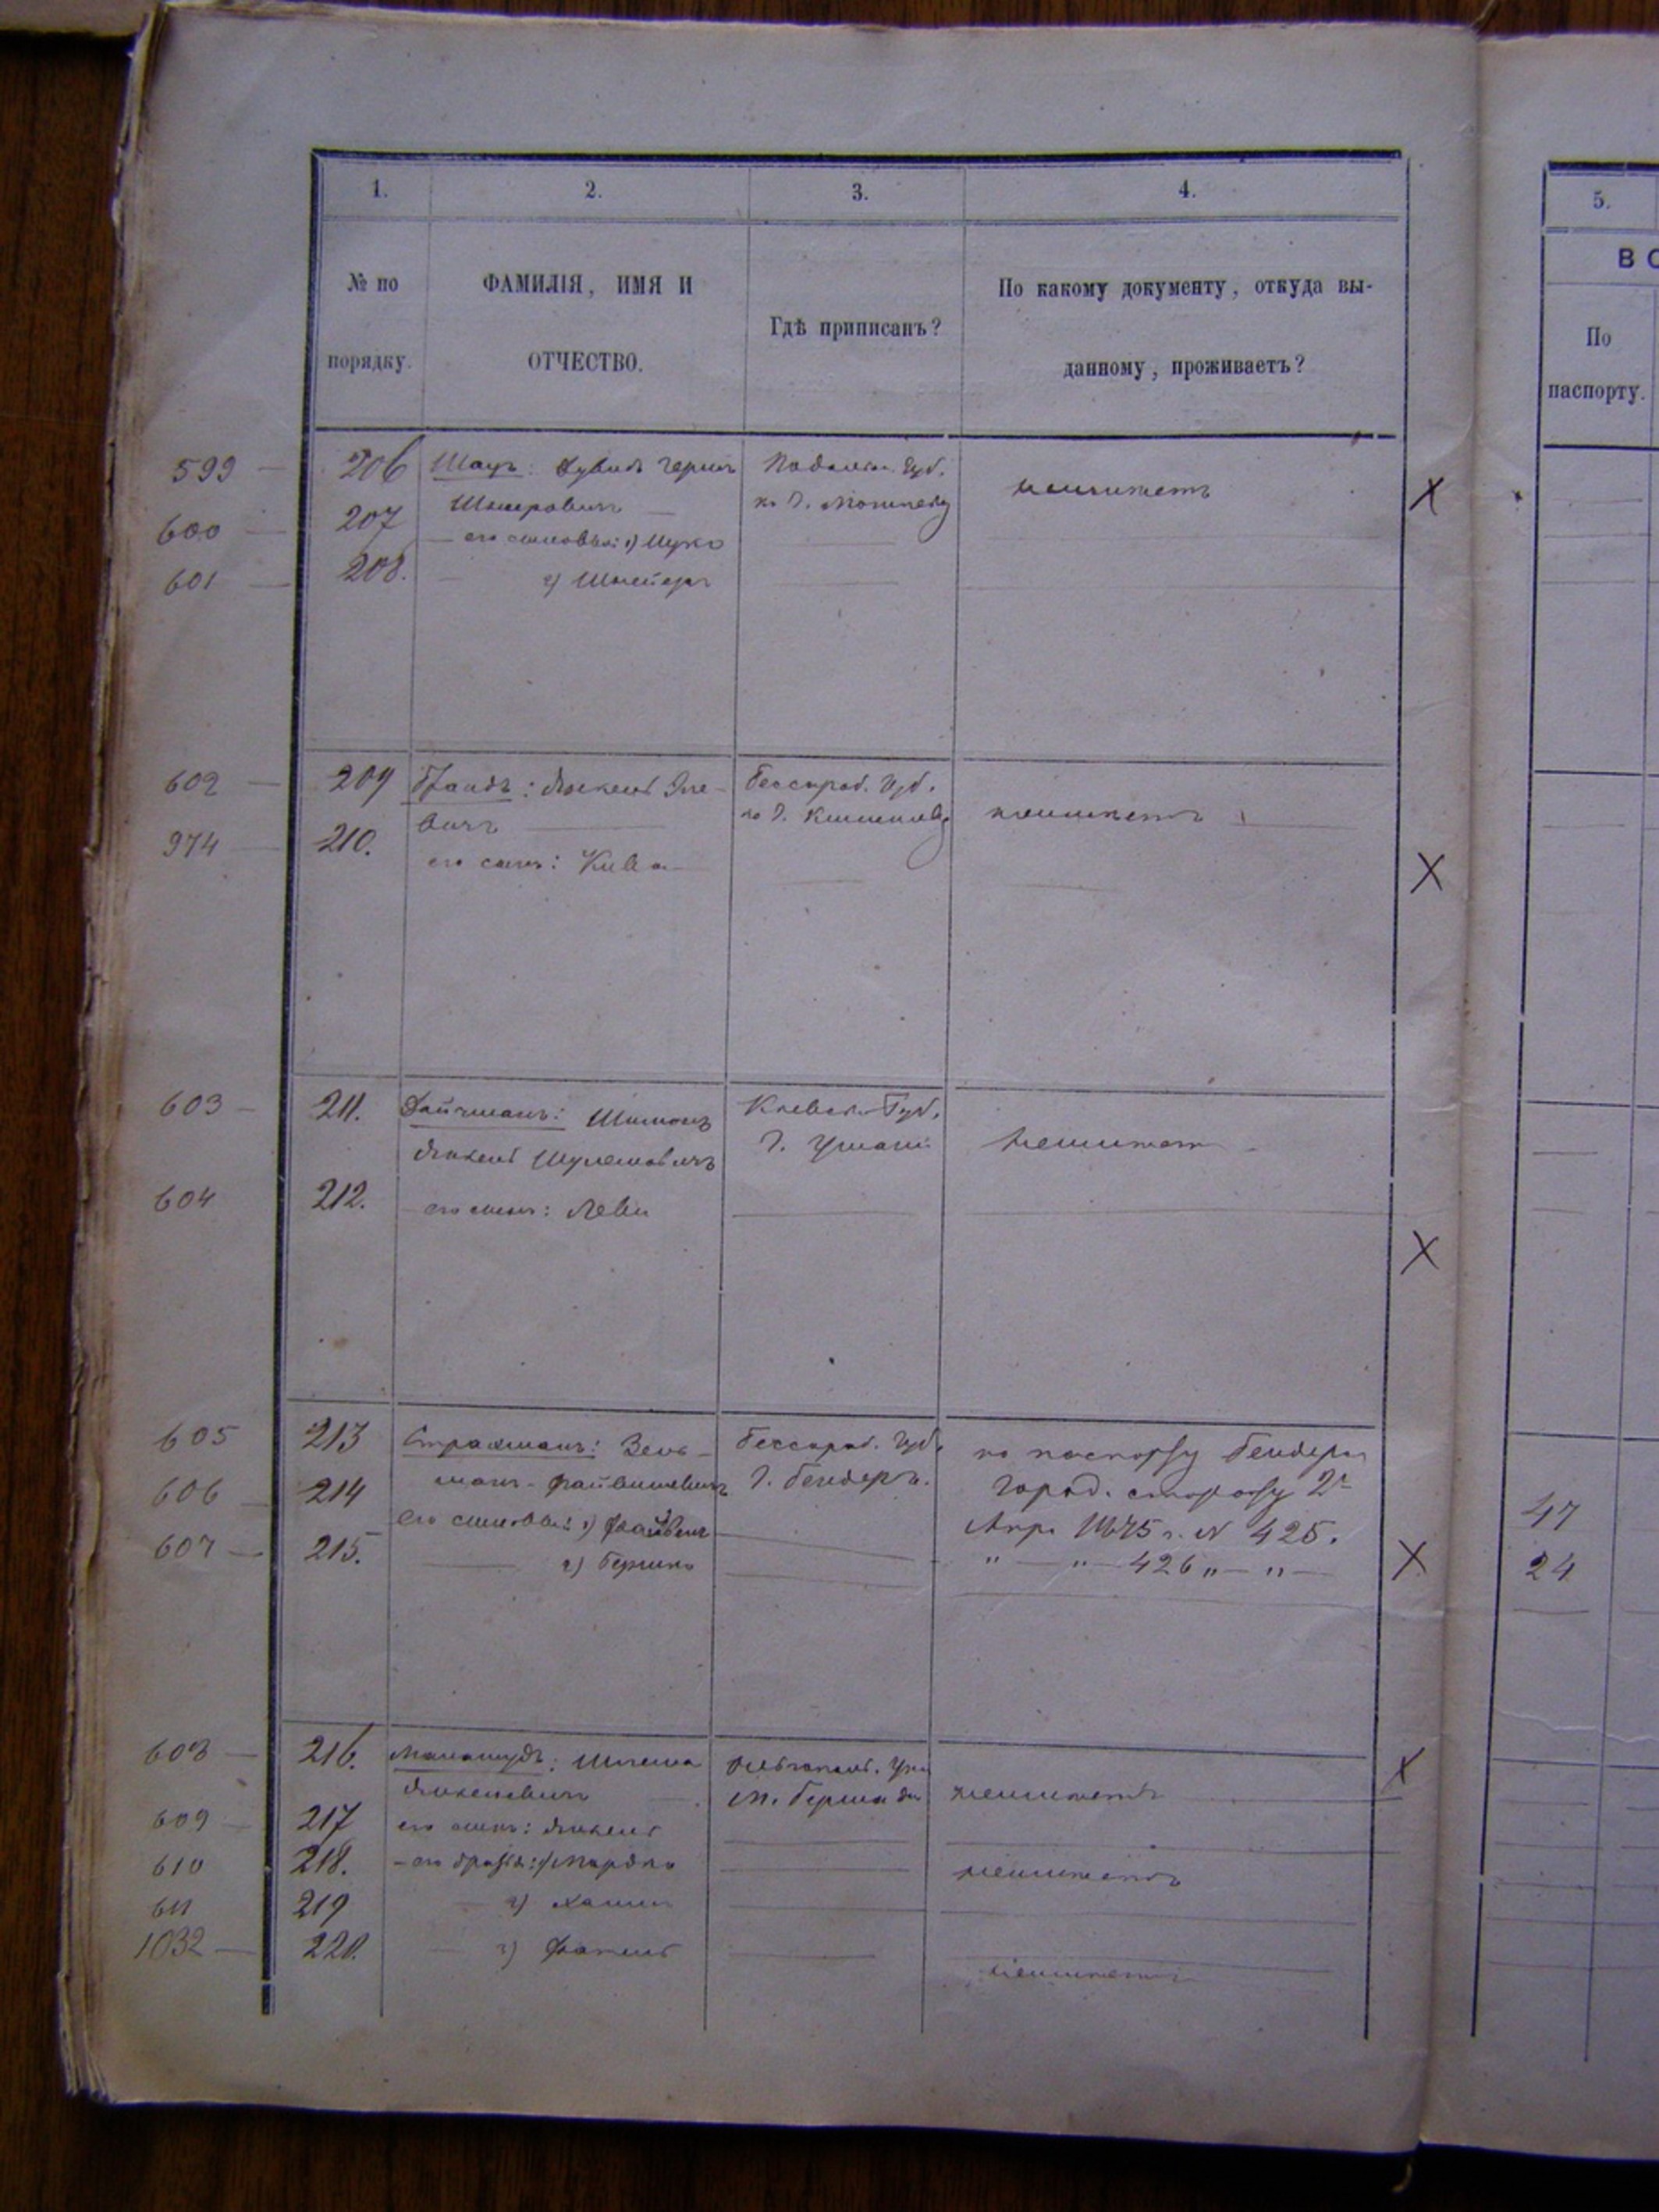 1. 2. 3. 4. 5.
№ по порядку.
ФАМИЛІЯ, ИМЯ И
ОТЧЕСТВО.
Гдѣ приписанъ?
По какому документу, откуда вы-
данному, проживаетъ?
По
паспорту.
599 206 Шацъ: Дувидъ Гершъ Подольск. Губ.
Шмеровичъ по г. Могилеву неимѣетъ
600 207 его сыновья: 1) Ицко
601 208. 2) Шмеръ
602 209 Брандъ: Янкель Эле- Бессараб. Губ.
вичъ по г. Кишиневу неимѣетъ
974 210. его сынъ: Кива
603 211. Дайчманъ: Шимонъ Кіевск. Губ.
Янкель Шулемовичъ г. Умани неимѣетъ
604 212. его сынъ: Леви
605 213 Страхманъ: Зель- Бессараб. Губ. по паспорту Бендеръ
606 214 манъ Файвишевичъ г. Бендеръ. город. старосты 2го
его сыновья: 1) Файвель Апр. 1875 г. № 425. 47
607 215. 2) Берко " — " — 426 " — " — 24
608 216. Шлема
Янкелевичъ м. Бершади неимѣетъ
609 217 его сынъ: Янкель
610 218. его братья: 1) Мордко неимѣетъ
611 219 2) Хаимъ
1032 220. 3) неимѣетъ